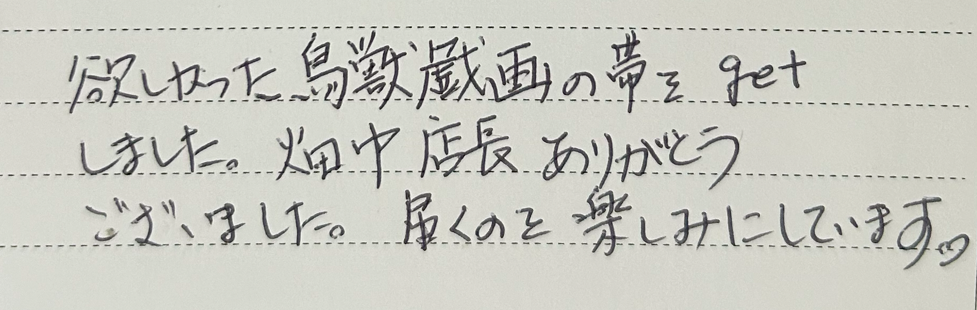 欲しかった鳥獣戯画の帯を get
しました。畑中店長ありがとう
ございました。届くのを楽しみにしています